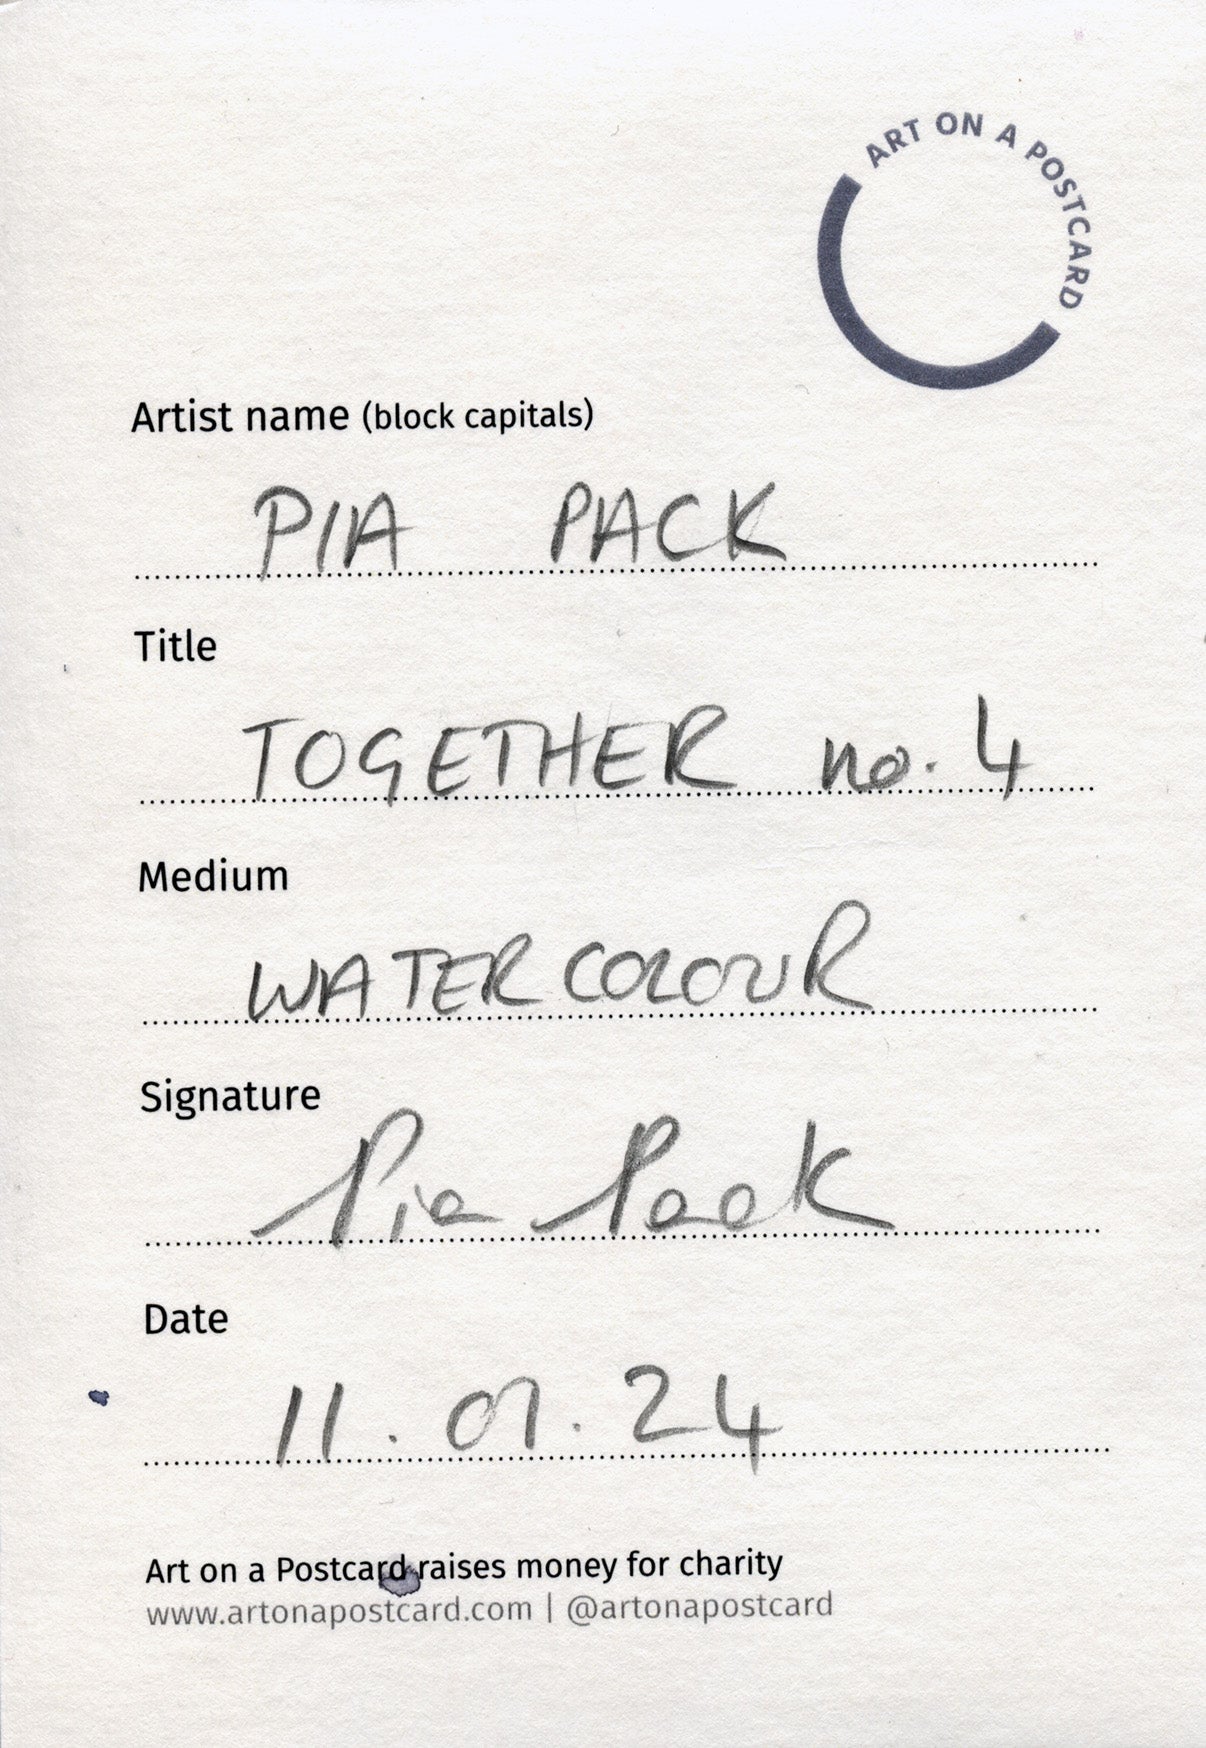 ART ON A POSTCARD
Artist name (block capitals)
PIA PACK
Title
TOGETHER no. 4
Medium
WATERCOLOUR
Signature
Pia Pack
Date
11.01.24
Art on a Postcard raises money for charity
www.artonapostcard.com | @artonapostcard